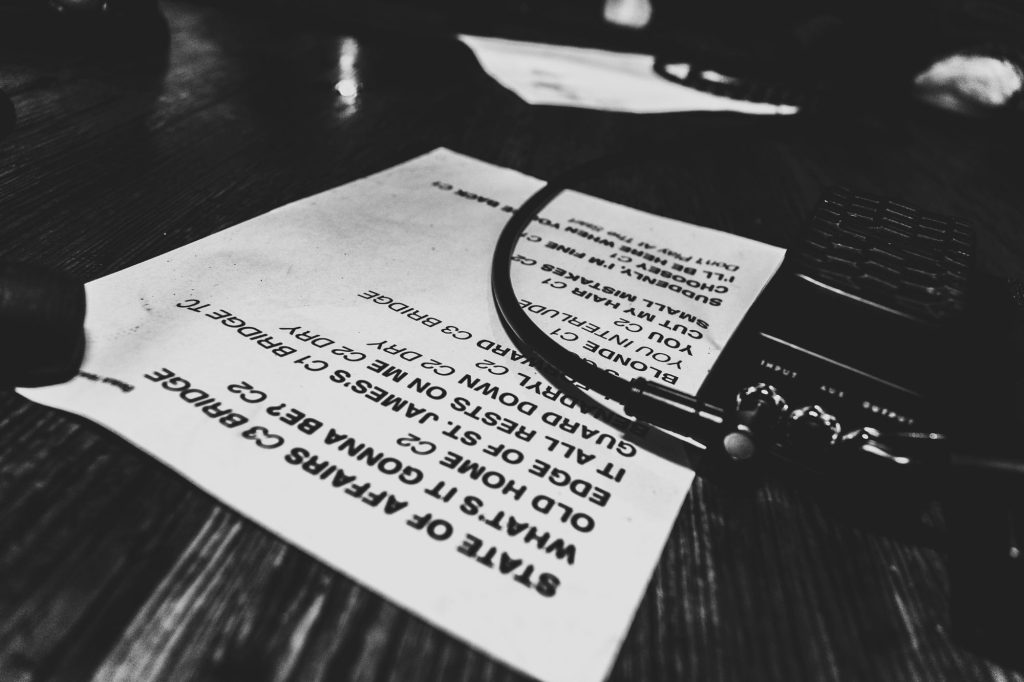 STATE OF AFFAIRS C3 BRIDGE
WHAT'S IT GONNA BE? C2
OLD HOME C2
EDGE OF ST. JAMES'S C1 BRIDGE TC
IT ALL RESTS ON ME C2 DRY
GUARD DOWN C2 DRY
BENADRYL C2
C3 BRIDGE
BLONDE C1
YOU INTERLUDE
YOU C2
CUT MY HAIR C1
SMALL MISTAKES C2
SUDDENLY, I'M FINE C1
CHOOSEY C1
I'LL BE HERE WHEN YOU BACK C1
Don't Play At The Start
INPUT AUX OUTPUT